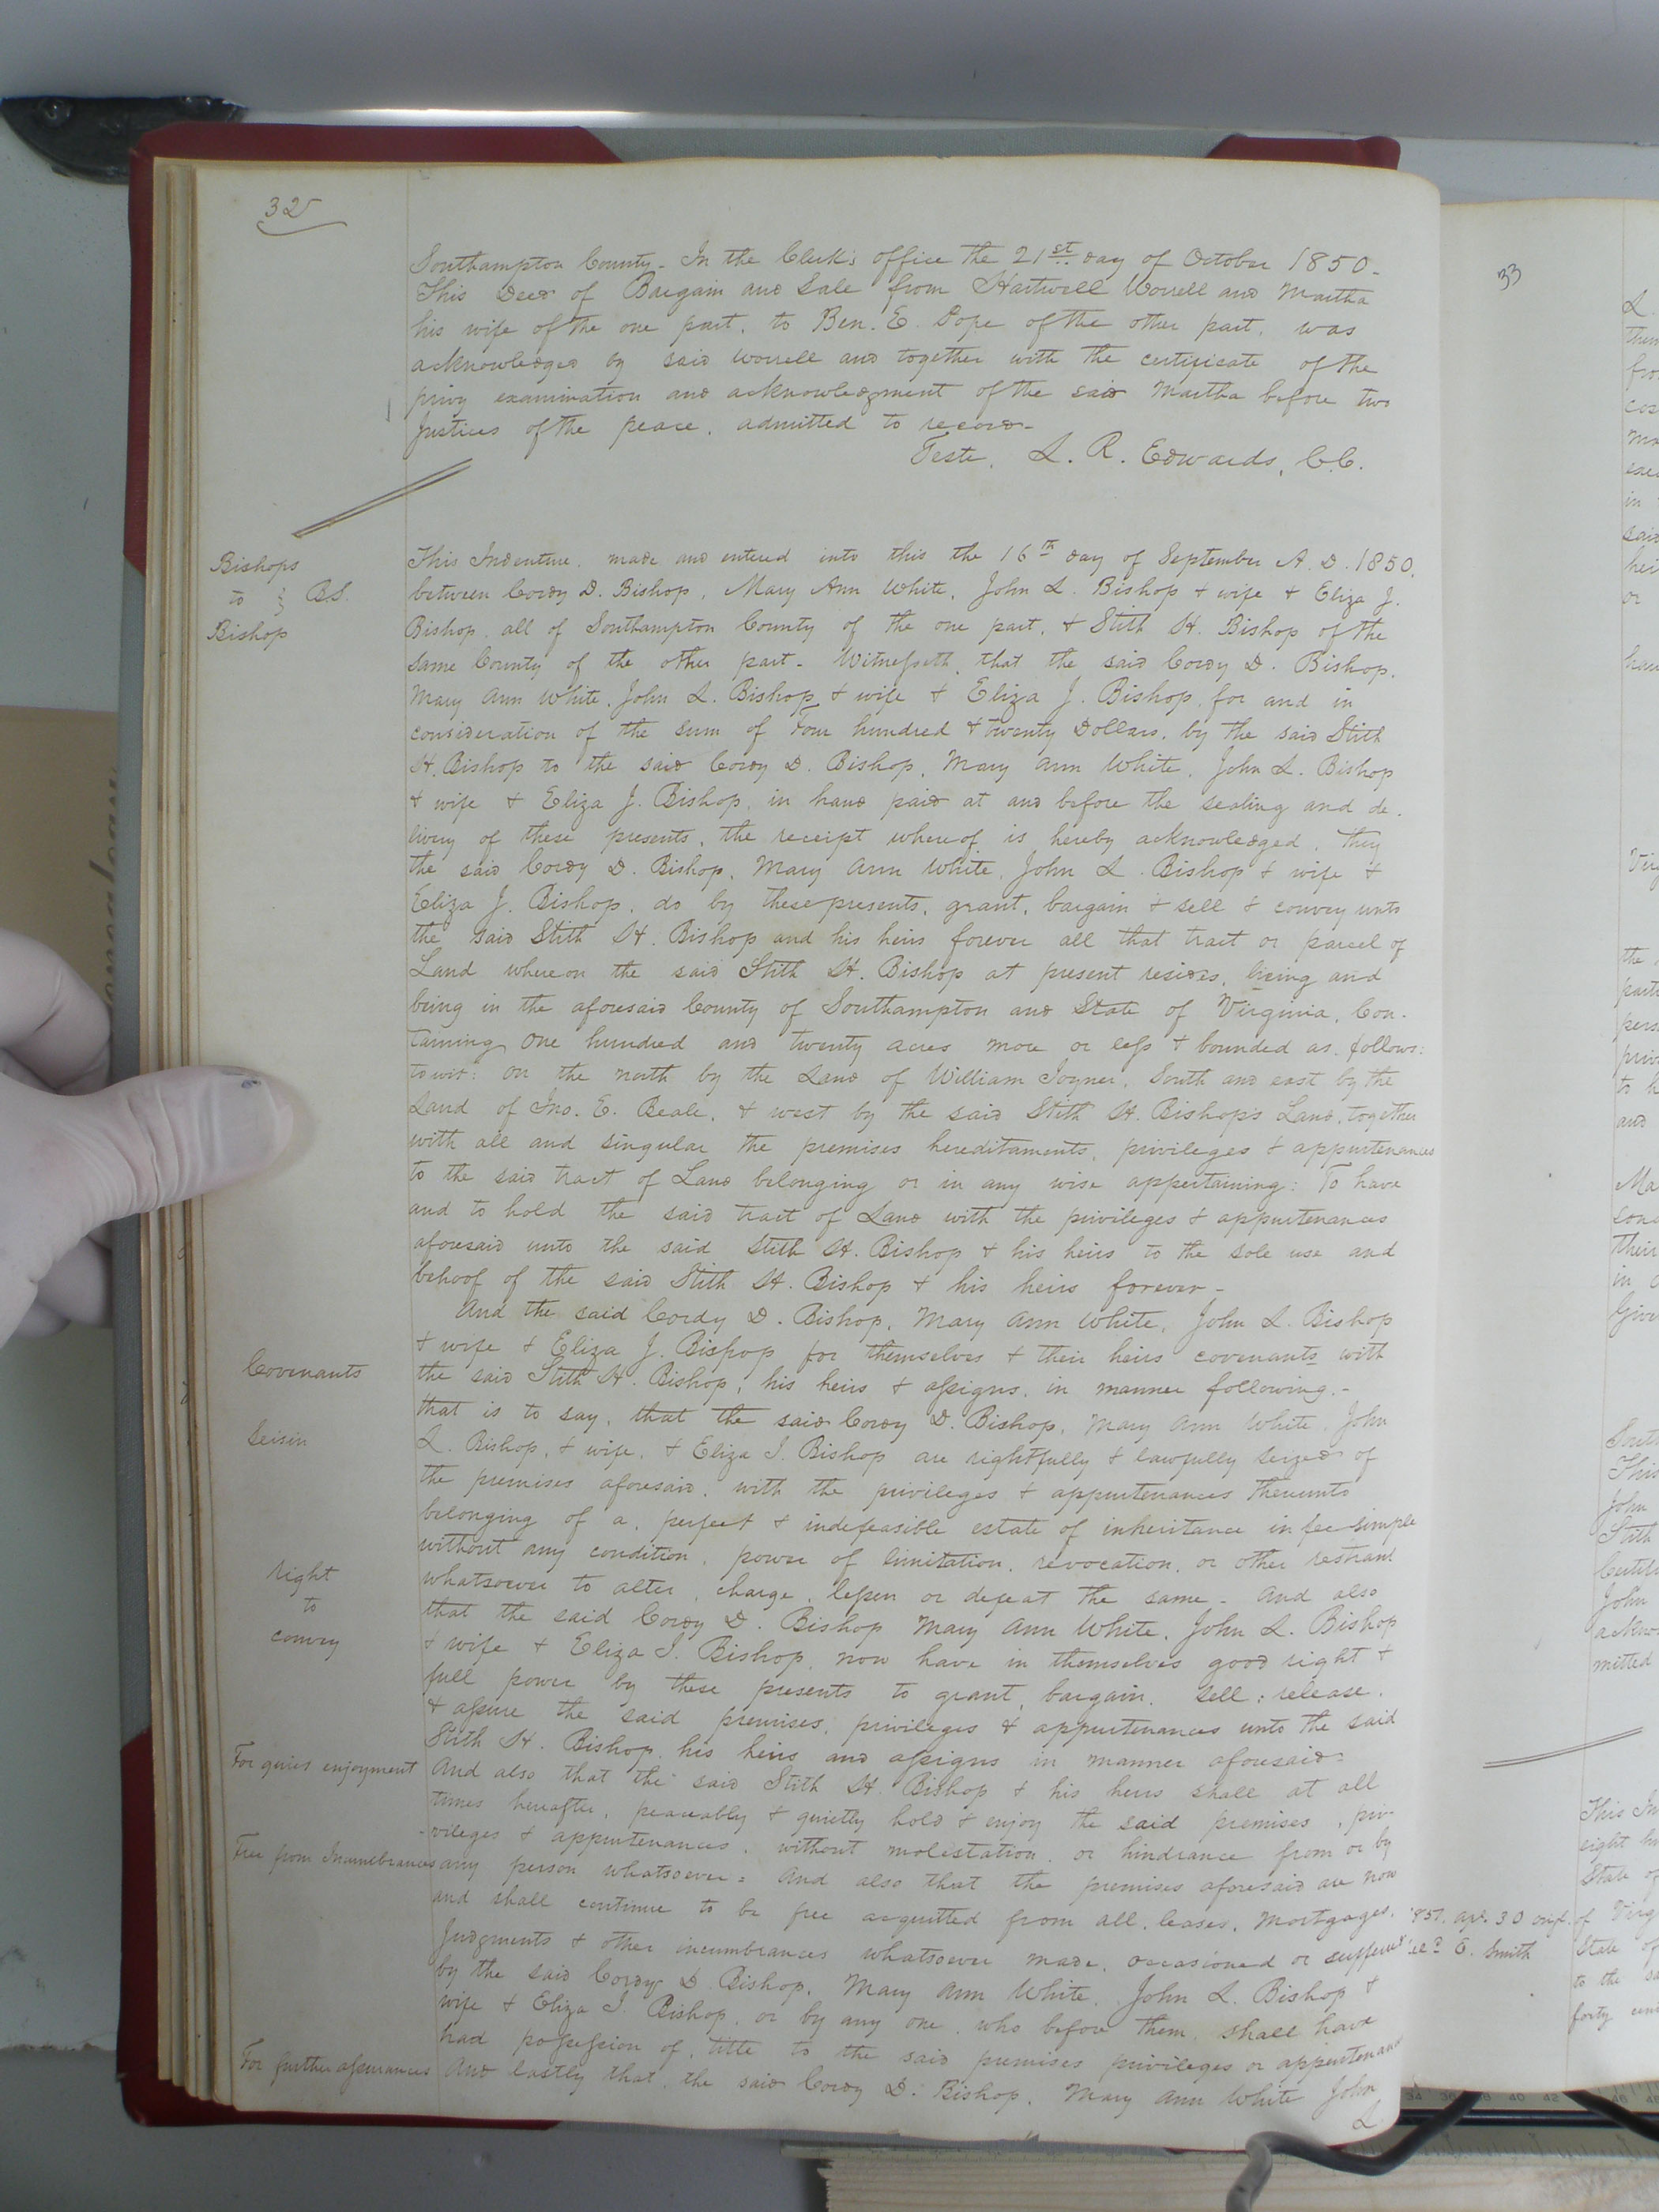 32
Southampton County - In the Clerk's office the 21st day of October 1850 -
This Deed of Bargain and Sale from Hartwell Worrell and Martha
his wife of the one part, to Ben. E. Pope of the other part, was
acknowledged by said Worrell and together with the certificate of the
privy examination and acknowledgment of the said Martha before two
Justices of the peace, admitted to record -
Teste, L. R. Edwards, C.C.
Bishops
to } BS.
Bishop
This Indenture, made and entered into this the 16th day of September A. D. 1850,
between Cordy D. Bishop, Mary Ann White, John L. Bishop + wife + Eliza J.
Bishop, all of Southampton County of the one part, + Stith H. Bishop of the
same County of the other part - Witnesseth, that the said Cordy D. Bishop,
Mary Ann White, John L. Bishop + wife + Eliza J. Bishop, for and in
consideration of the sum of Four hundred + twenty Dollars, by the said Stith
H. Bishop to the said Cordy D. Bishop, Mary Ann White, John L. Bishop
+ wife + Eliza J. Bishop, in hand paid at and before the sealing and de-
livery of these presents, the receipt whereof is hereby acknowledged, they
the said Cordy D. Bishop, Mary Ann White, John L. Bishop + wife +
Eliza J. Bishop, do by these presents, grant, bargain + sell + convey unto
the said Stith H. Bishop and his heirs forever all that tract or parcel of
Land whereon the said Stith H. Bishop at present resides, lieing and
being in the aforesaid County of Southampton and State of Virginia, Con-
taining One hundred and twenty acres more or less + bounded as follows:
towit: on the north by the Land of William Joyner, South and east by the
Land of Jno. E. Beale, + west by the said Stith H. Bishop's Land, together
with all and singular the premises hereditaments, privileges + appurtenances
to the said tract of Land belonging or in any wise appertaining: To have
and to hold the said tract of Land with the privileges + appurtenances
aforesaid unto the said Stith H. Bishop + his heirs to the sole use and
behoof of the said Stith H. Bishop + his heirs forever -
And the said Cordy D. Bishop, Mary Ann White, John L. Bishop
+ wife + Eliza J. Bishop for themselves + their heirs covenants with
Covenants
the said Stith H. Bishop, his heirs + assigns, in manner following -
that is to say, that the said Cordy D. Bishop, Mary Ann White, John
Seisin
L. Bishop, + wife, + Eliza J. Bishop are rightfully + lawfully seized of
the premises aforesaid, with the privileges + appurtenances thereunto
belonging of a, perfect + indefeasible estate of inheritance in fee simple
without any condition, power of limitation, revocation, or other restraint
right
to
convey
whatsoever to alter, charge, lessen or defeat the same - And also
that the said Cordy D. Bishop Mary Ann White, John L. Bishop
+ wife + Eliza J. Bishop, now have in themselves good right +
full power by these presents to grant, bargain, sell, release,
+ assure the said premises, privileges + appurtenances unto the said
Stith H. Bishop, his heirs and assigns in manner aforesaid -
For quiet enjoyment
And also that the said Stith H. Bishop + his heirs shall at all
times hereafter, peaceably + quietly hold + enjoy the said premises, pri-
-vileges + appurtenances, without molestation, or hindrance from or by
Free from Incumbrances
any person whatsoever = And also that the premises aforesaid are now
and shall continue to be free acquitted from all, leases, mortgages,
Judgments + other incumbrances whatsoever made, occasioned or suffered
by the said Cordy D. Bishop, Mary Ann White, John L. Bishop +
wife + Eliza J. Bishop, or by any one, who before them, shall have
had possession of, title to the said premises privileges or appurtenances
For further assurances
And lastly that, the said Cordy D. Bishop, Mary Ann White John
L.
33
E. Smith